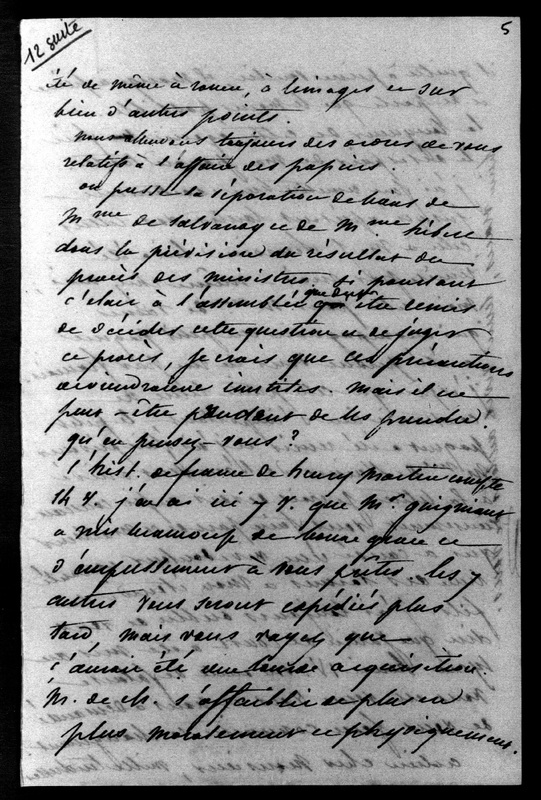 12 suite
5
été de même à rouen, à limoges et sur
bien d'autres points.
nous attendons toujours des ordres de vous
relatifs à l'affaire des papiers.
on pousse la séparation de biens de
Mme de Salvandy et de Mme hébert
dans la prévision du résultat du
procès des ministres. si pourtant
c'était à l'assemblée que devra être remis
de décider cette question et de juger
ce procès, je crois que ces précautions
deviendraient inutiles. mais il ne
peut-être prudent de les prendre.
qu'en pensez-vous?
l'hist. de france de henry Martin compte
14 v. j'en ai ici 7 v. que Mr. guigniaut
a mis beaucoup de bonne grâce et
d'empressement à vous prêter les 7
autres vous seront expédiés plus
tard, mais vous voyez que
c'aurait été une lourde acquisition.
M. de ch. s'affaiblit de plus en
plus moralement et physiquement.